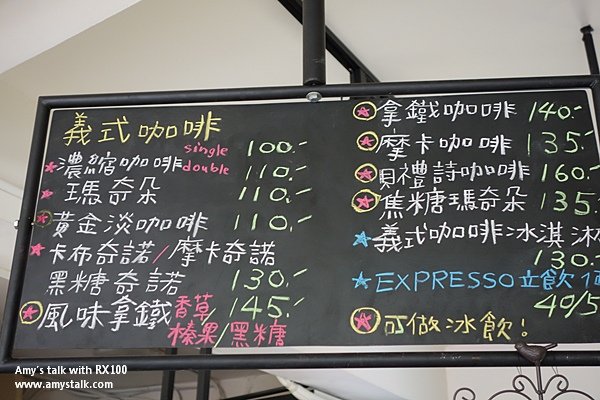 義式咖啡
濃縮咖啡 single 100.-
double 110.-
瑪奇朵 110.-
黃金淡咖啡 110.-
卡布奇諾/摩卡奇諾
黑糖奇諾 130.-
風味拿鐵 香草/ 145.-
榛果/黑糖
拿鐵咖啡 140.-
摩卡咖啡 135.-
貝禮詩咖啡 160.-
焦糖瑪奇朵 135.
義式咖啡冰淇淋
130.-
EXPRESSO立飲
40/5
可做冰飲!
Amy's talk with RX100
www.amystalk.com